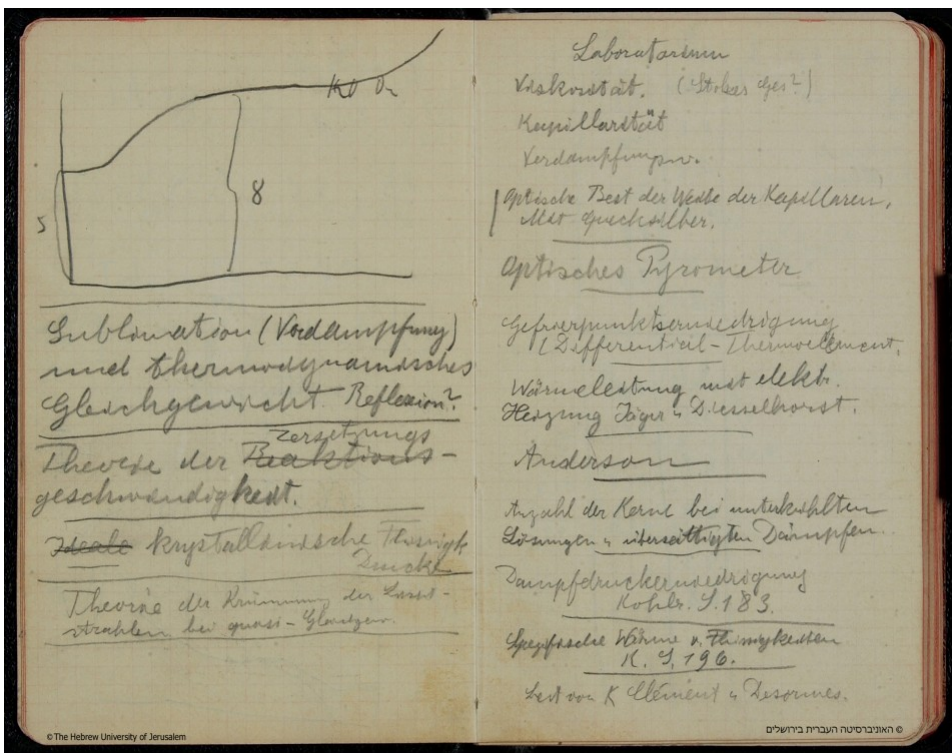 5
8
Sublimation (Verdampfung)
und thermodynamisches
Gleichgewicht. Reflexion?
Zersetzungs
Theorie der Reaktions-
geschwindigkeit.
Ideale krystallinische
Theorie der Krümmung der Licht-
strahlen bei quasi-
Laboratorium
Viskosität. (Stokes Ges?)
Kapillarität
Verdampfungsw.
Optische Best der Weite der Kapillaren.
Mit Quecksilber.
Optisches Pyrometer
Gefrierpunktserniedrigung
(Differential-Thermoelement.
Wärmeleitung mit elektr.
Heizung Jäger u Diesselhorst.
Anderson
Anzahl der Kerne bei unterkühlten
Lösungen u übersättigten Dämpfen.
Dampfdruckerniedrigung
Kohlr. S. 183.
Spezifische Wärme v. Flüssigkeiten
K. S. 196.
Best von K Clément u Desormes.
© The Hebrew University of Jerusalem
© האוניברסיטה העברית בירושלים